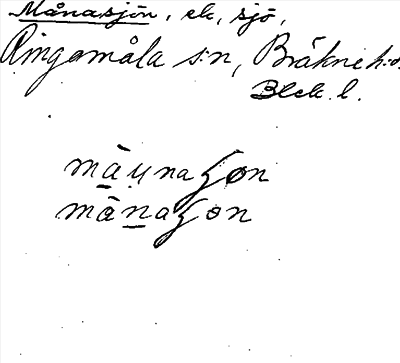 Månasjön, ek, sjö,
Ringamåla s:n, Bräkne h:d.
Blek. l.
màu̯naʃon
mànaʃon